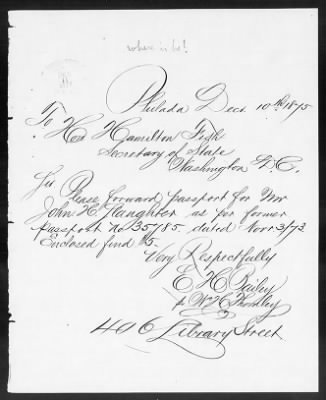 where is he?
Philada Decr 10th 1875
To Hon Hamilton Fish
Secretary of State
Washington D.C.
Sir Please forward passport for Mr
John H. Slaughter as per former
passport No 35785 dated Novr 3/73
Enclosed find $5.
Very Respectfully
E H Bailey
406 Library Street